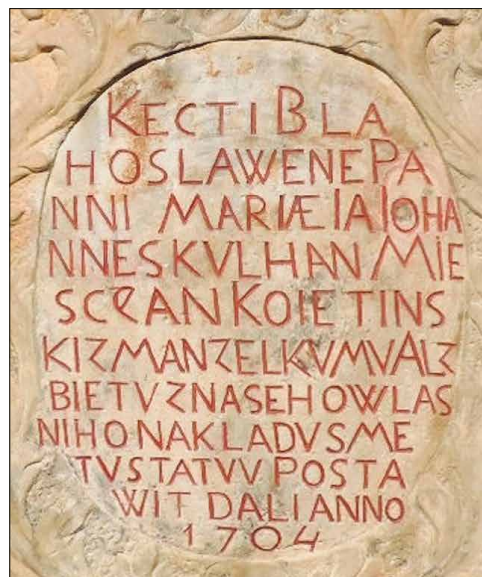 KECTI BLA
HOSLAWENE PA
NNI MARIÆ IA IOHA
NNES KVLHAN MIE
SCEAN KOIETINS
KI Z MANZELKV MV ALZ
BIETV Z NASEHO WLAS
NIHO NAKLADV SME
TV STATVV POSTA
WIT DALI ANNO
1704